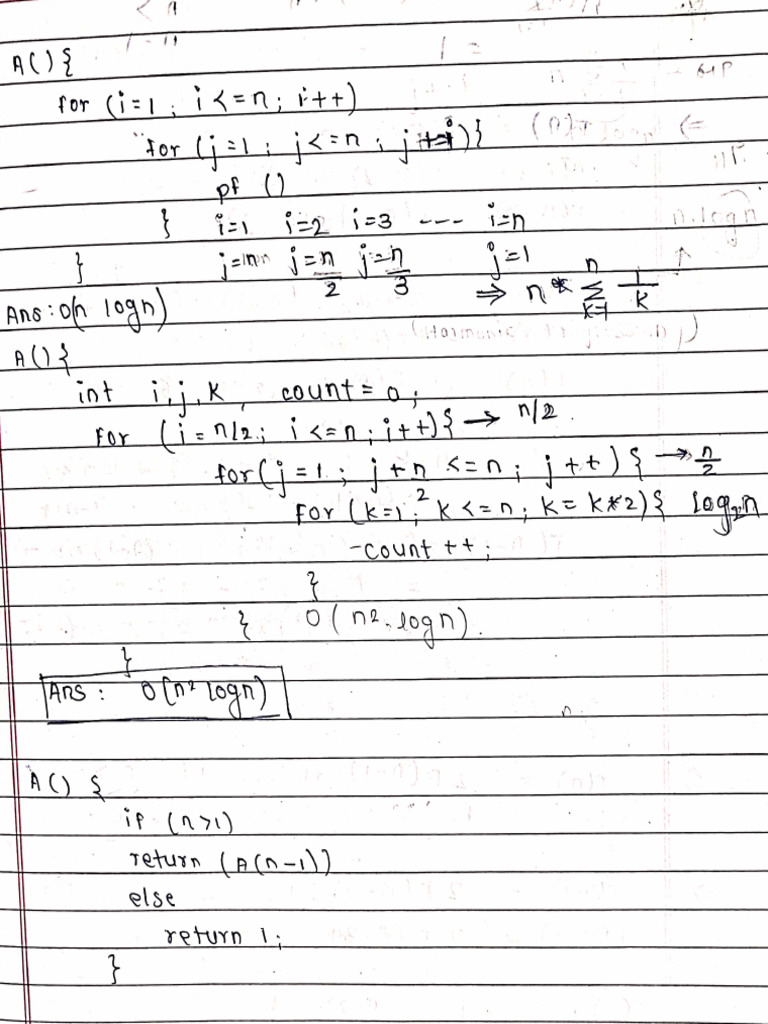 A() {
for (i=1 ; i <= n ; i++)
for (j=1 ; j <= n ; j+=i) {
pf ()
} i=1 i=2 i=3 --- i=n
} j=n j=n/2 j=n/3 j=1
⇒ n * n Σ k=1 1/k
Ans : O(n logn)
A() {
int i, j, k, count = 0 ;
for (i = n/2 ; i <= n ; i++) { → n/2
for (j = 1 ; j + n/2 <= n ; j++) { → n/2
for (k=1 ; k <= n ; k = k*2) { log₂n
count ++ ;
}
} O(n². logn).
}
Ans : O(n² logn)
A() {
if (n>1)
return (A(n-1))
else
return 1 ;
}